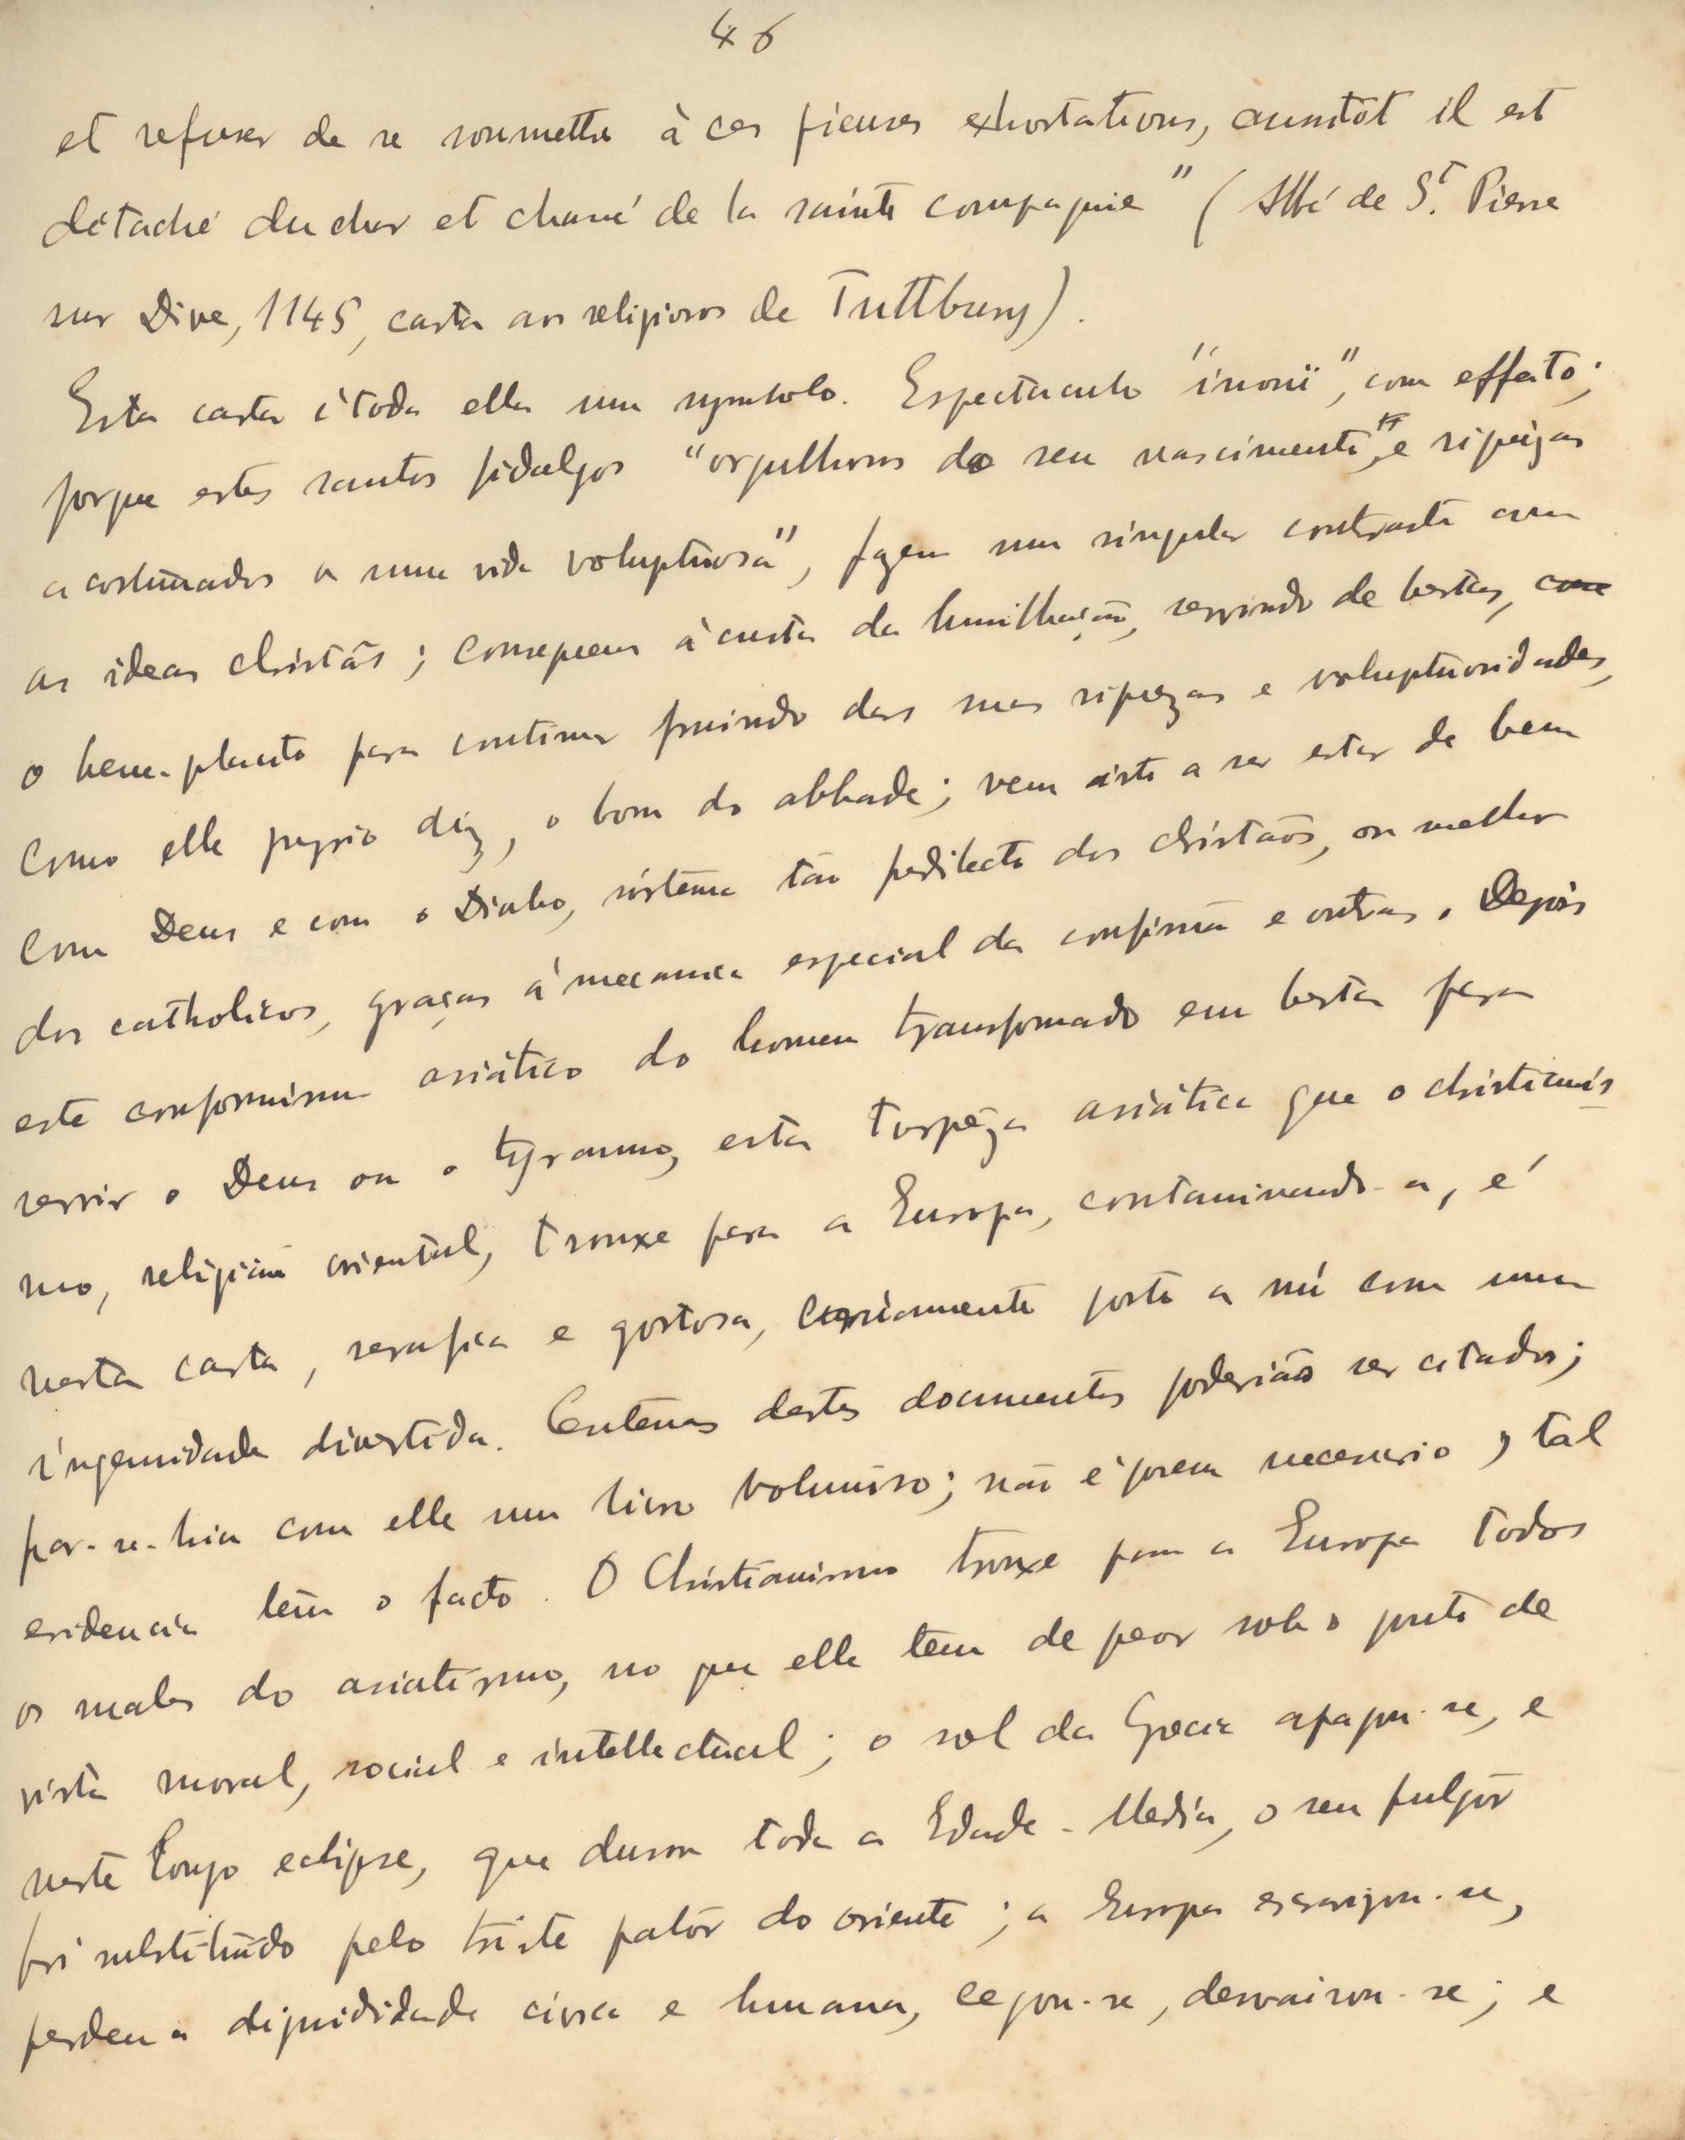 46
et refuser de se soumettre à ces pieuses exhortations, aussitôt il est
détaché du char et chassé de la sainte compagnie" (Abbé de S.t Pierre
sur Dive, 1145, carta aos religiosos de Tuttbury).
Esta carta é toda ella um symbolo. Espectaculo "inouï", com effeito;
porque estes santos fidalgos "orgulhosos do seu nascimento" e riquezas
acostumados a uma vida voluptuosa", fazem um singular contraste com
as ideas christãs; conseguem à custa da humilhação, servindo de bestas, com
o bene-placito para continuar fruindo das suas riquezas e voluptuosidades,
como elle proprio diz, o bom do abbade; vem isto a ser estar de bem
com Deus e com o Diabo, sistema tão predilecto dos christãos, ou melhor
dos catholicos, graças á mecanica especial da confissão e outras. Depois
este conformismo asiático do homem transformado em besta para
servir o Deus ou o tyranno, esta torpêza asiática que o christianis
mo, religião oriental, trouxe para a Europa, contaminando-a, é
nesta carta, serafica e gostosa, claramente posta a nú com uma
ingenuidade divertida. Centenas destes documentos poderião ser citados;
far-se-hia com elle um livro volumoso; não é porem necessario, tal
evidencia tem o facto. O Christianismo trouxe para a Europa todos
os males do asiatismo, no que elle tem de peor sob o ponto de
vista moral, social e intellectual; o sol da Grecia apagou-se, e
neste longo eclipse, que durou toda a Edade-Media, o seu fulgôr
foi substituido pelo triste palôr do oriente; a Europa escravizou-se,
perdeu a dignididade civica e humana, cegou-se, desvairou-se; e